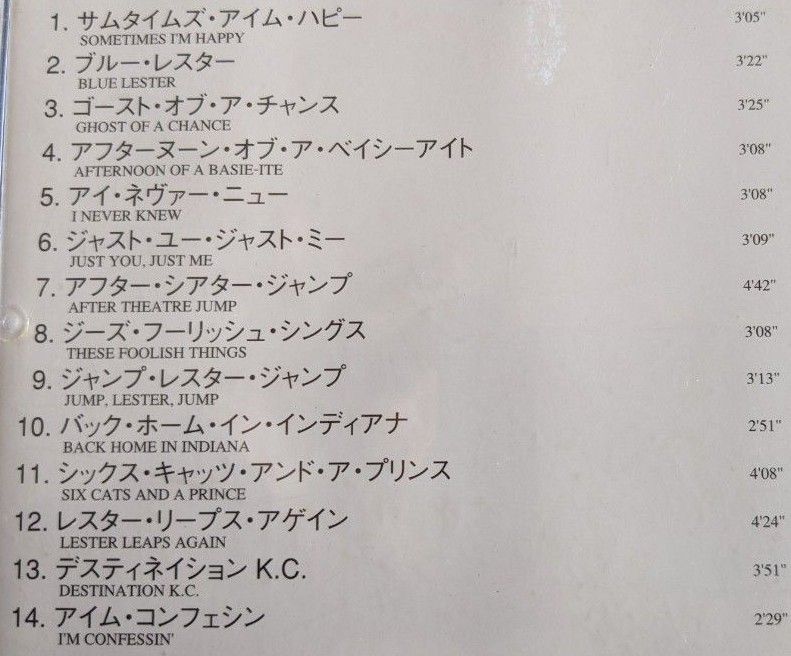 1. サムタイムズ・アイム・ハピー 3'05"
SOMETIMES I'M HAPPY
2. ブルー・レスター 3'22"
BLUE LESTER
3. ゴースト・オブ・ア・チャンス 3'25"
GHOST OF A CHANCE
4. アフターヌーン・オブ・ア・ベイシーアイト 3'08"
AFTERNOON OF A BASIE-ITE
5. アイ・ネヴァー・ニュー 3'08"
I NEVER KNEW
6. ジャスト・ユー・ジャスト・ミー 3'09"
JUST YOU, JUST ME
7. アフター・シアター・ジャンプ 4'42"
AFTER THEATRE JUMP
8. ジーズ・フーリッシュ・シングス 3'08"
THESE FOOLISH THINGS
9. ジャンプ・レスター・ジャンプ 3'13"
JUMP, LESTER, JUMP
10. バック・ホーム・イン・インディアナ 2'51"
BACK HOME IN INDIANA
11. シックス・キャッツ・アンド・ア・プリンス 4'08"
SIX CATS AND A PRINCE
12. レスター・リープス・アゲイン 4'24"
LESTER LEAPS AGAIN
13. デスティネイション K.C. 3'51"
DESTINATION K.C.
14. アイム・コンフェシン 2'29"
I'M CONFESSIN'